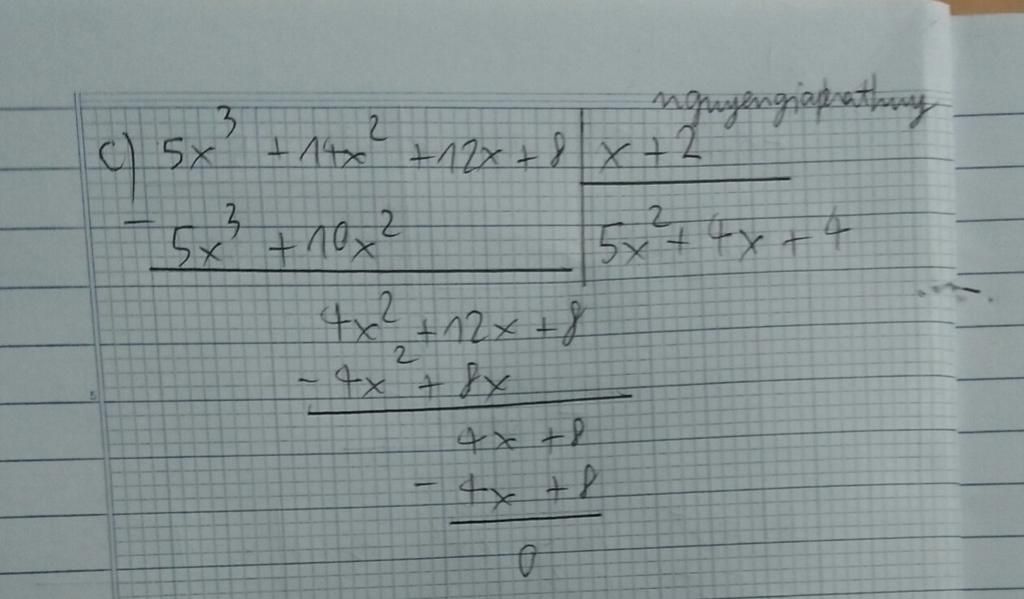 nguyengiaphathuy
c) 5x³ + 14x² + 12x + 8 | x + 2
- 5x³ + 10x² | 5x² + 4x + 4
4x² + 12x + 8
- 4x² + 8x
4x + 8
- 4x + 8
0